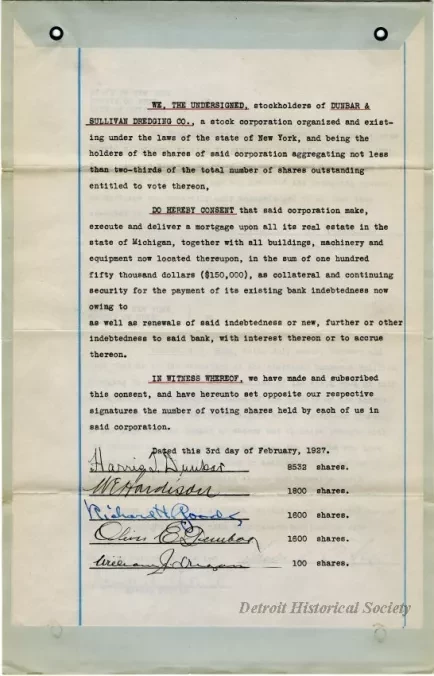 WE, THE UNDERSIGNED, stockholders of DUNBAR &
SULLIVAN DREDGING CO., a stock corporation organized and exist-
ing under the laws of the state of New York, and being the
holders of the shares of said corporation aggregating not less
than two-thirds of the total number of shares outstanding
entitled to vote thereon,
DO HEREBY CONSENT that said corporation make,
execute and deliver a mortgage upon all its real estate in the
state of Michigan, together with all buildings, machinery and
equipment now located thereupon, in the sum of one hundred
fifty thousand dollars ($150,000), as collateral and continuing
security for the payment of its existing bank indebtedness now
owing to
as well as renewals of said indebtedness or new, further or other
indebtedness to said bank, with interest thereon or to accrue
thereon.
IN WITNESS WHEREOF, we have made and subscribed
this consent, and have hereunto set opposite our respective
signatures the number of voting shares held by each of us in
said corporation.
Dated this 3rd day of February, 1927.
Harris T. Dunbar 8532 shares.
W E Hardison 1800 shares.
Richard H. 1600 shares.
Oliver E. Dunbar 1600 shares.
William J. 100 shares.
Detroit Historical Society